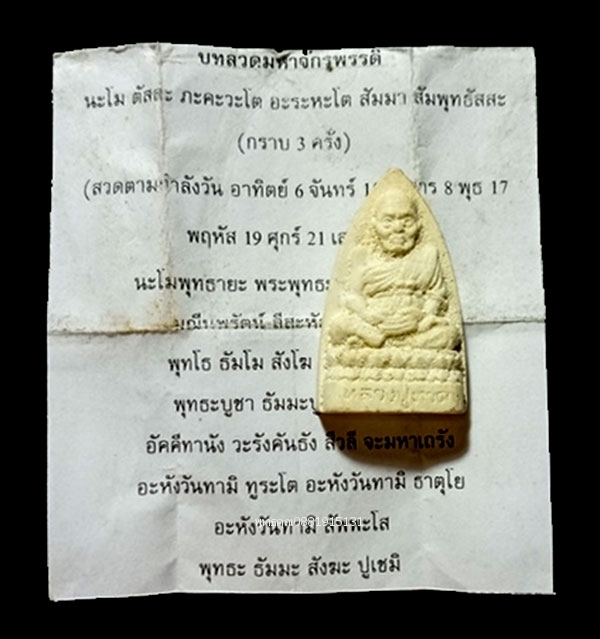 บทสวดมหาจักรพรรดิ
นะโม ตัสสะ ภะคะวะโต อะระหะโต สัมมา สัมพุทธัสสะ
(กราบ 3 ครั้ง)
(สวดตามกำลังวัน อาทิตย์ 6 จันทร์ 8 พุธ 17
พฤหัส 19 ศุกร์ 21
นะโมพุทธายะ พระพุทธะ
มณีนพรัตน์ สีสะหัส
พุทโธ ธัมโม สังโฆ
พุทธะบูชา ธัมมะบู
อัคคีทานัง วะรังคันธัง สีวลี จะมหาเถรัง
อะหังวันทามิ ทูระโต อะหังวันทามิ ธาตุโย
อะหังวันทามิ สัพพะโส
พุทธะ ธัมมะ สังฆะ ปูเชมิ
หลวงปู่ทวด